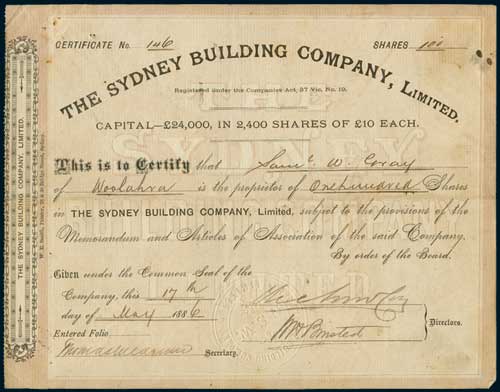 CERTIFICATE No. 146 SHARES 100
THE SYDNEY BUILDING COMPANY, LIMITED.
Registered under the Companies Act, 37 Vic. No. 19.
CAPITAL—£24,000, IN 2,400 SHARES OF £10 EACH.
This is to Certify that Saml. W. Gray
of Woolahra is the proprietor of One hundred Shares
in THE SYDNEY BUILDING COMPANY, Limited, subject to the provisions of the
Memorandum and Articles of Association of the said Company.
By order of the Board.
Given under the Common Seal of the
Company, this 17th
day of May 1886
Directors.
Entered Folio
Secretary.
THE SYDNEY BUILDING COMPANY, LIMITED.
SYDNEY